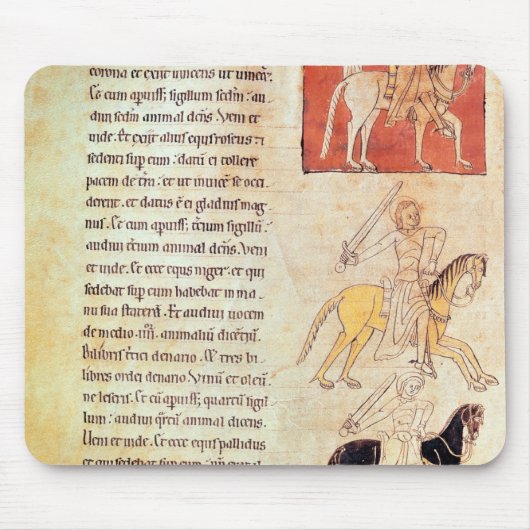 corona et exiit vincens ut vincer.
Et cum apuiss; sigillum sedm: au
diui sedm animal dcns. Veni et
uide. Et exiit alius equs roseus: 7
sedenti sup cum: datu ei collere
pacem de tra: et ut inuice se occi
derent. et datus e ei gladius mag
nus. Et cum apuiss; tcium sigillu:
audiui tcium animal dcns. Veni
et uide. Et ecce equs niger: et qui
sedebat sup eum habebat in ma
nu sua statera. Et audiui uocem
de medio. animaliu dicetiu.
Bilibris tici denario. et tres bi
libres ordei denario. Vinu et oleu
ne leseris. Et cu apuiss; quartu sigil
lum: audiui qrtu animal dicens.
Veni et uide. Et ecce equs pallidus
et qui sedebat sup